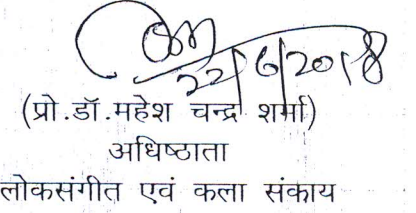 22/6/2018
(प्रो.डॉ.महेश चन्द्र शर्मा)
अधिष्ठाता
लोकसंगीत एवं कला संकाय